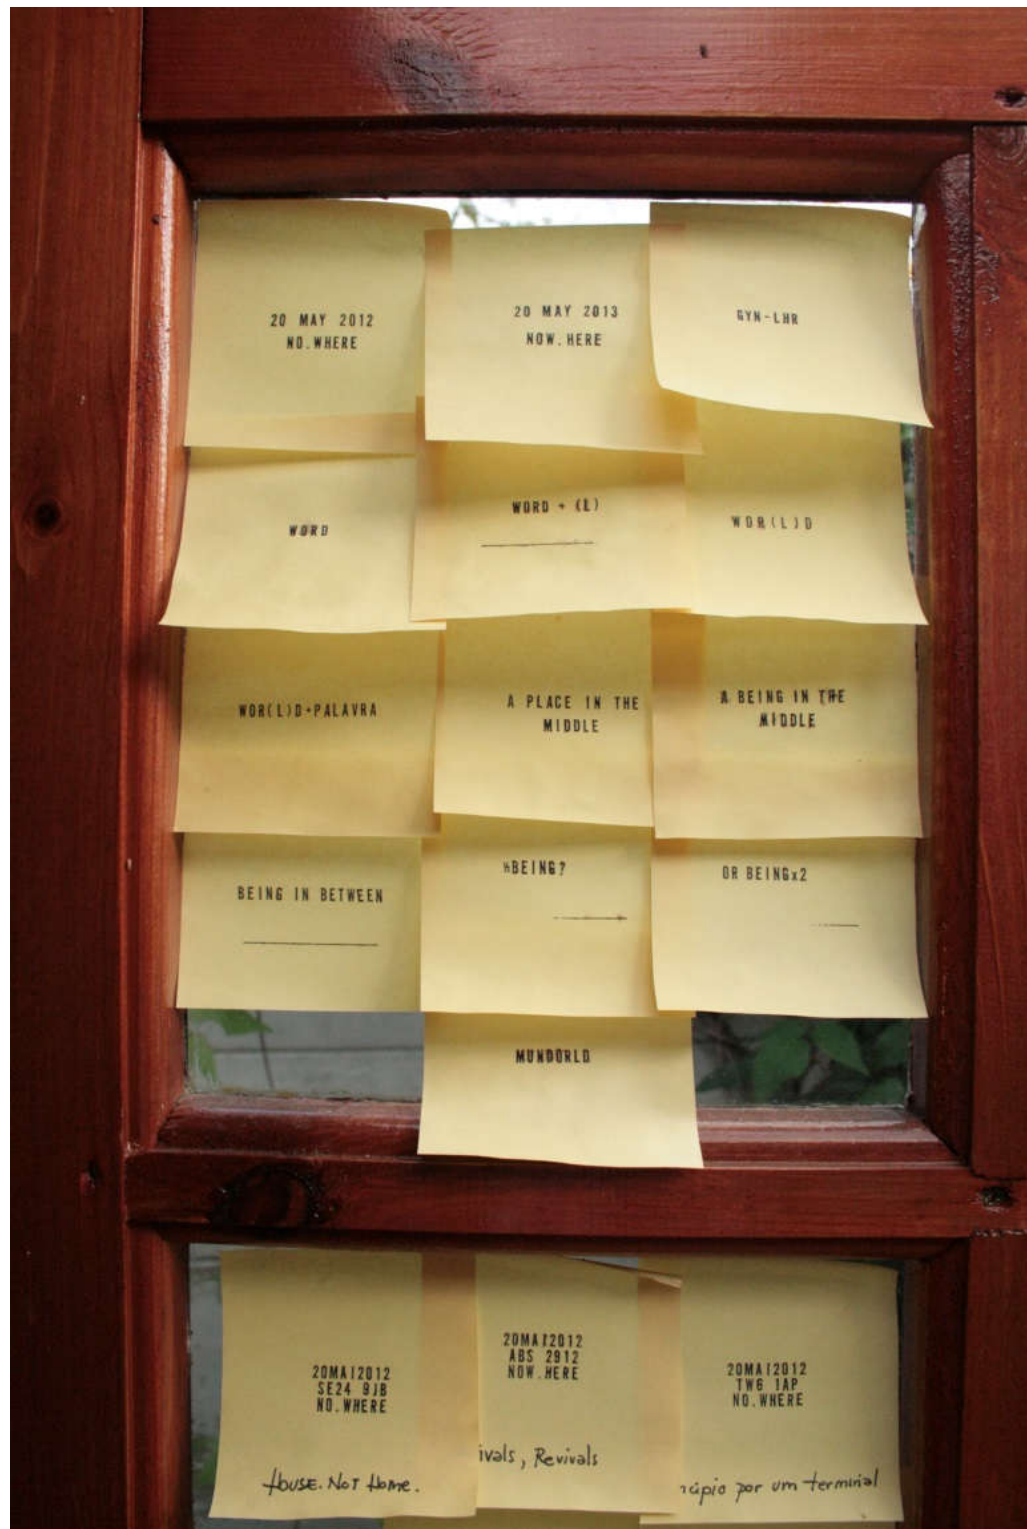 20 MAY 2012
NO.WHERE
20 MAY 2013
NOW.HERE
GYN-LHR
WORD
WORD + (L)
WOR(L)D
WOR(L)D+PALAVRA
A PLACE IN THE
MIDDLE
A BEING IN THE
MIDDLE
BEING IN BETWEEN
½BEING?
OR BEINGx2
MUNDORLD
20MAI2012
SE24 9JB
NO.WHERE
House. Not Home.
20MAI2012
ABS 2912
NOW.HERE
ivals, Revivals
20MAI2012
TW6 1AP
NO.WHERE
ncípio por um terminal